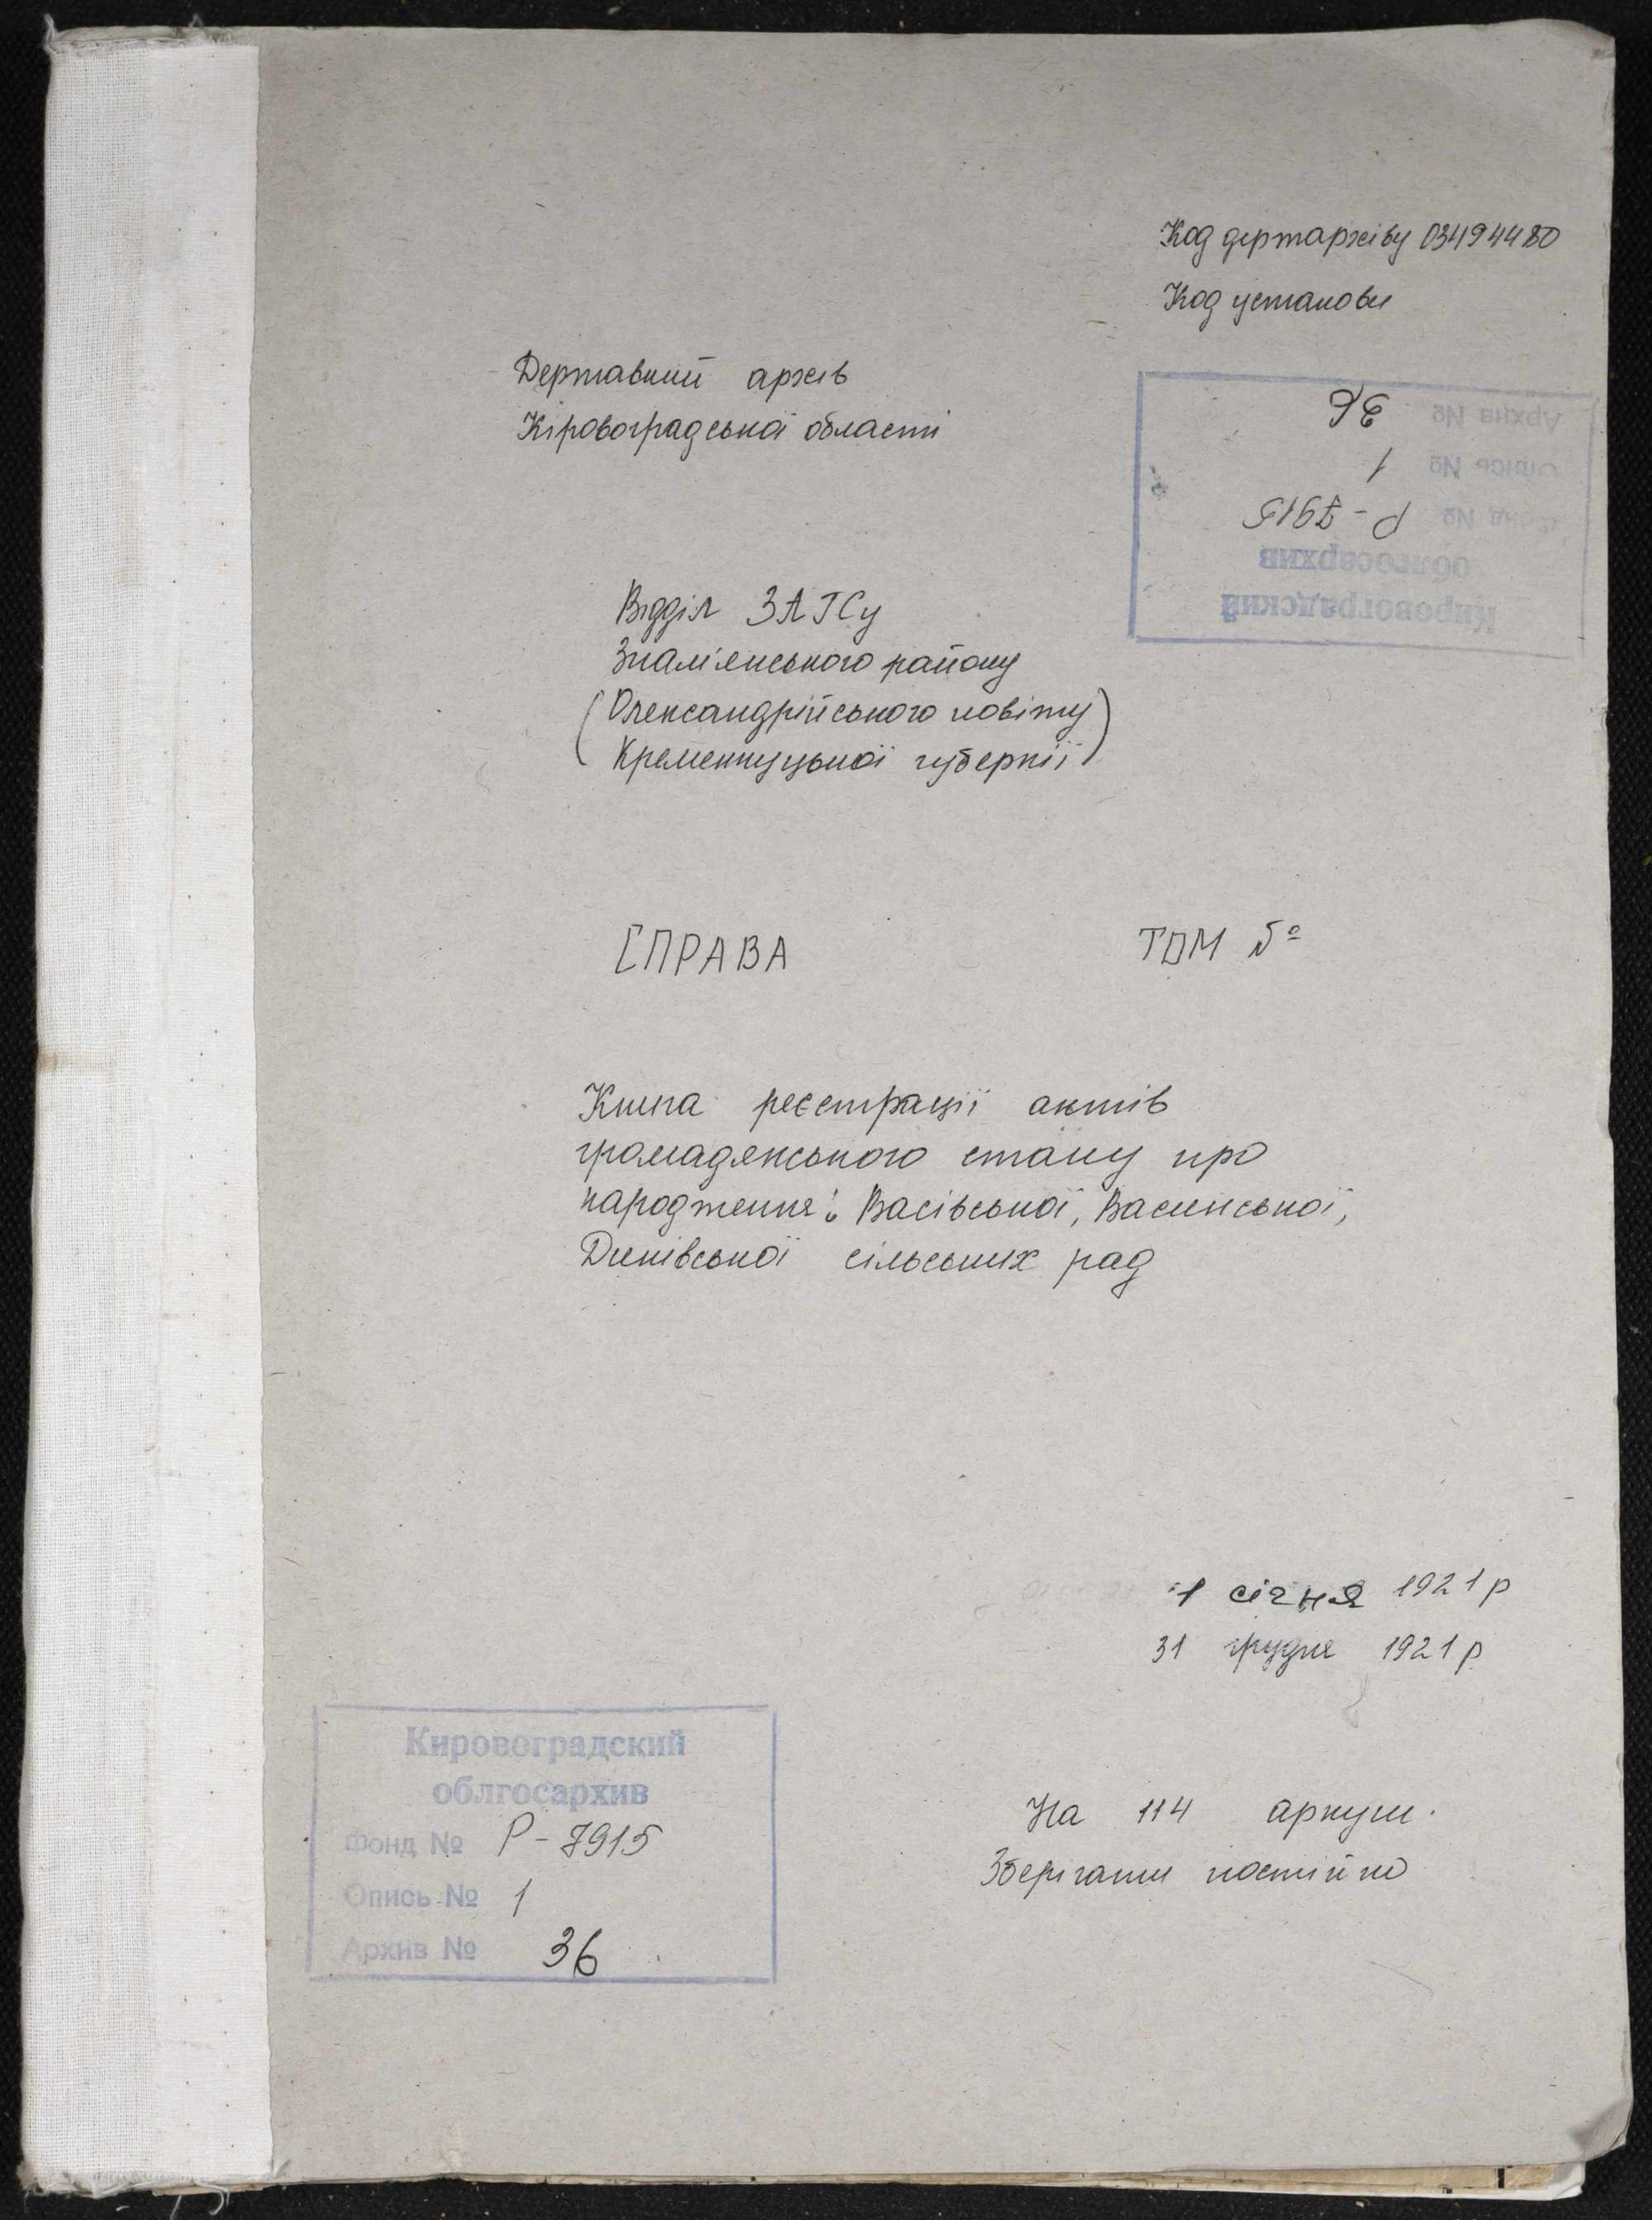 Код держархіву 03494480
Код установи
Державний архів
Кіровоградської області
Архив № 36
Опись № 1
Фонд № Р-7915
облгосархив
Кировоградский
Відділ ЗАГСу
Знам'янського району
(Олександрійського повіту
Кременчуцької губернії)
СПРАВА
ТОМ №
Книга реєстрації актів
громадянського стану про
народження: Васівської, Васинської,
Диківської сільських рад
1 січня 1921 р
31 грудня 1921 р
Кировоградский
облгосархив
Фонд № Р-7915
Опись № 1
Архив № 36
На 114 аркуш.
Зберігати постійно